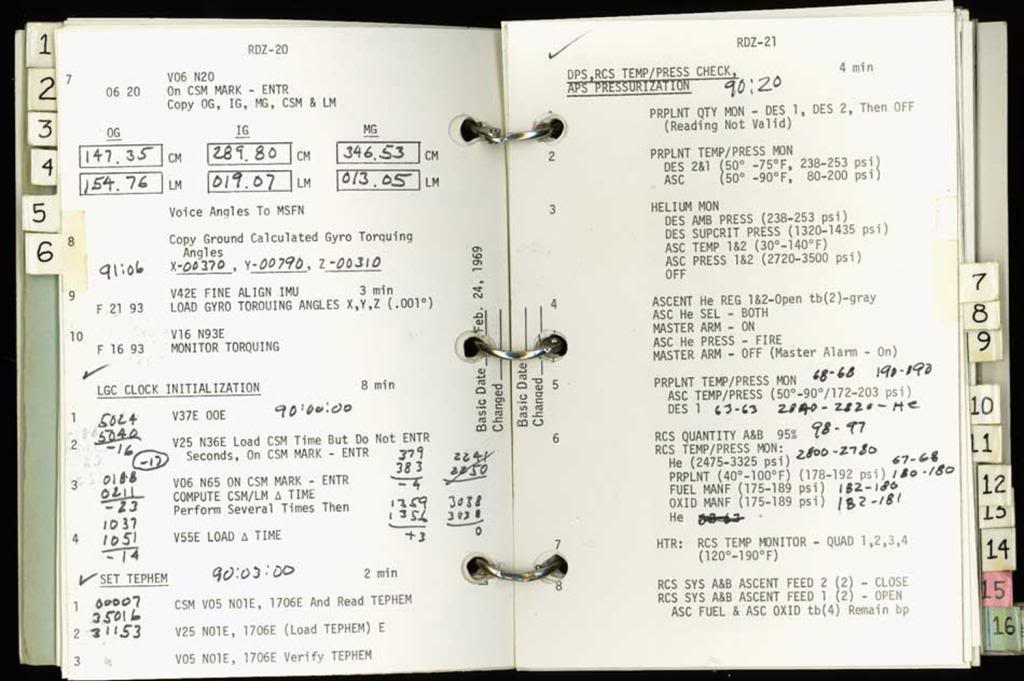 1
2
3
4
5
6
RDZ-20
7 V06 N20
06 20 On CSM MARK - ENTR
Copy OG, IG, MG, CSM & LM
OG IG MG
147.35 CM 289.80 CM 346.53 CM
154.76 LM 019.07 LM 013.05 LM
Voice Angles To MSFN
8 Copy Ground Calculated Gyro Torquing
Angles
91:06 X-00370, Y-00790, Z-00310
9 V42E FINE ALIGN IMU 3 min
F 21 93 LOAD GYRO TORQUING ANGLES X,Y,Z (.001°)
10 V16 N93E
F 16 93 MONITOR TORQUING
LGC CLOCK INITIALIZATION 8 min
1 5024 V37E 00E 90:00:00
2 5040 V25 N36E Load CSM Time But Do Not ENTR
-16 -17 Seconds, On CSM MARK - ENTR 379
383 2250
3 0188 V06 N65 ON CSM MARK - ENTR -4
0211 COMPUTE CSM/LM Δ TIME
-23 Perform Several Times Then 1359 3038
1356 3038
1037 +3 0
4 1051 V55E LOAD Δ TIME
-14
SET TEPHEM 90:03:00 2 min
1 00007 CSM V05 N01E, 1706E And Read TEPHEM
35016
2 31153 V25 N01E, 1706E (Load TEPHEM) E
3 V05 N01E, 1706E Verify TEPHEM
Basic Date Feb. 24, 1969
Changed
Basic Date
Changed
RDZ-21
DPS,RCS TEMP/PRESS CHECK, 4 min
APS PRESSURIZATION 90:20
1 PRPLNT QTY MON - DES 1, DES 2, Then OFF
(Reading Not Valid)
2 PRPLNT TEMP/PRESS MON
DES 2&1 (50° -75°F, 238-253 psi)
ASC (50° -90°F, 80-200 psi)
3 HELIUM MON
DES AMB PRESS (238-253 psi)
DES SUPCRIT PRESS (1320-1435 psi)
ASC TEMP 1&2 (30°-140°F)
ASC PRESS 1&2 (2720-3500 psi)
OFF
4 ASCENT He REG 1&2-Open tb(2)-gray
ASC He SEL - BOTH
MASTER ARM - ON
ASC He PRESS - FIRE
MASTER ARM - OFF (Master Alarm - On)
5 PRPLNT TEMP/PRESS MON 68-68 190-190
ASC TEMP/PRESS (50°-90°/172-203 psi)
DES 1 63-63 2840-2820-He
6 RCS QUANTITY A&B 95% 98-97
RCS TEMP/PRESS MON: 2800-2780
He (2475-3325 psi) 67-68
PRPLNT (40°-100°F) (178-192 psi) 180-180
FUEL MANF (175-189 psi) 182-180
OXID MANF (175-189 psi) 182-181
He
7 HTR: RCS TEMP MONITOR - QUAD 1,2,3,4
(120°-190°F)
8 RCS SYS A&B ASCENT FEED 2 (2) - CLOSE
RCS SYS A&B ASCENT FEED 1 (2) - OPEN
ASC FUEL & ASC OXID tb(4) Remain bp
7
8
9
10
11
12
13
14
15
16